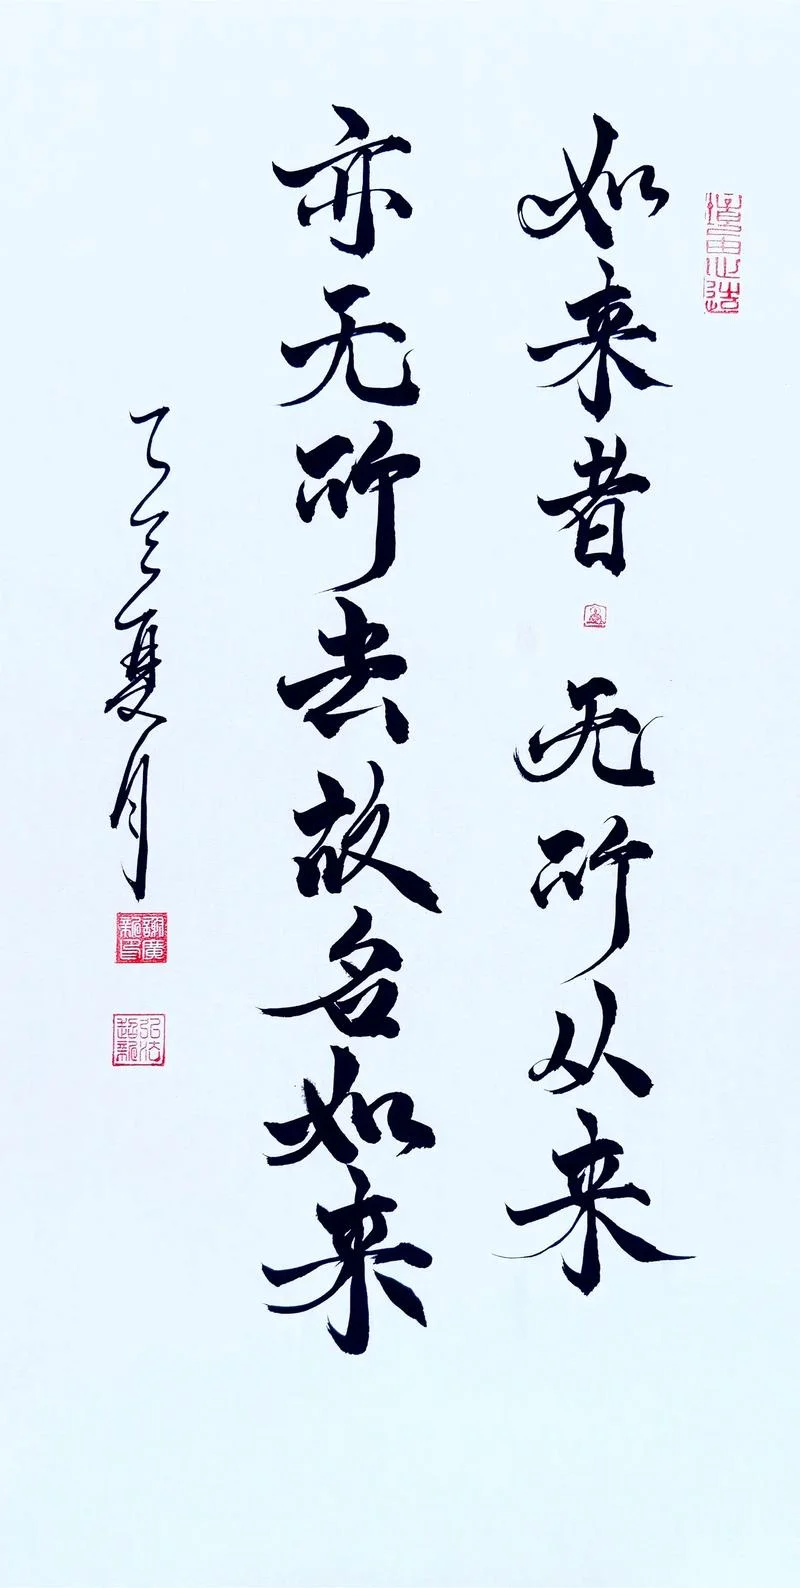 如来者无所从来
亦无所去故名如来
乙巳夏月
境由心造